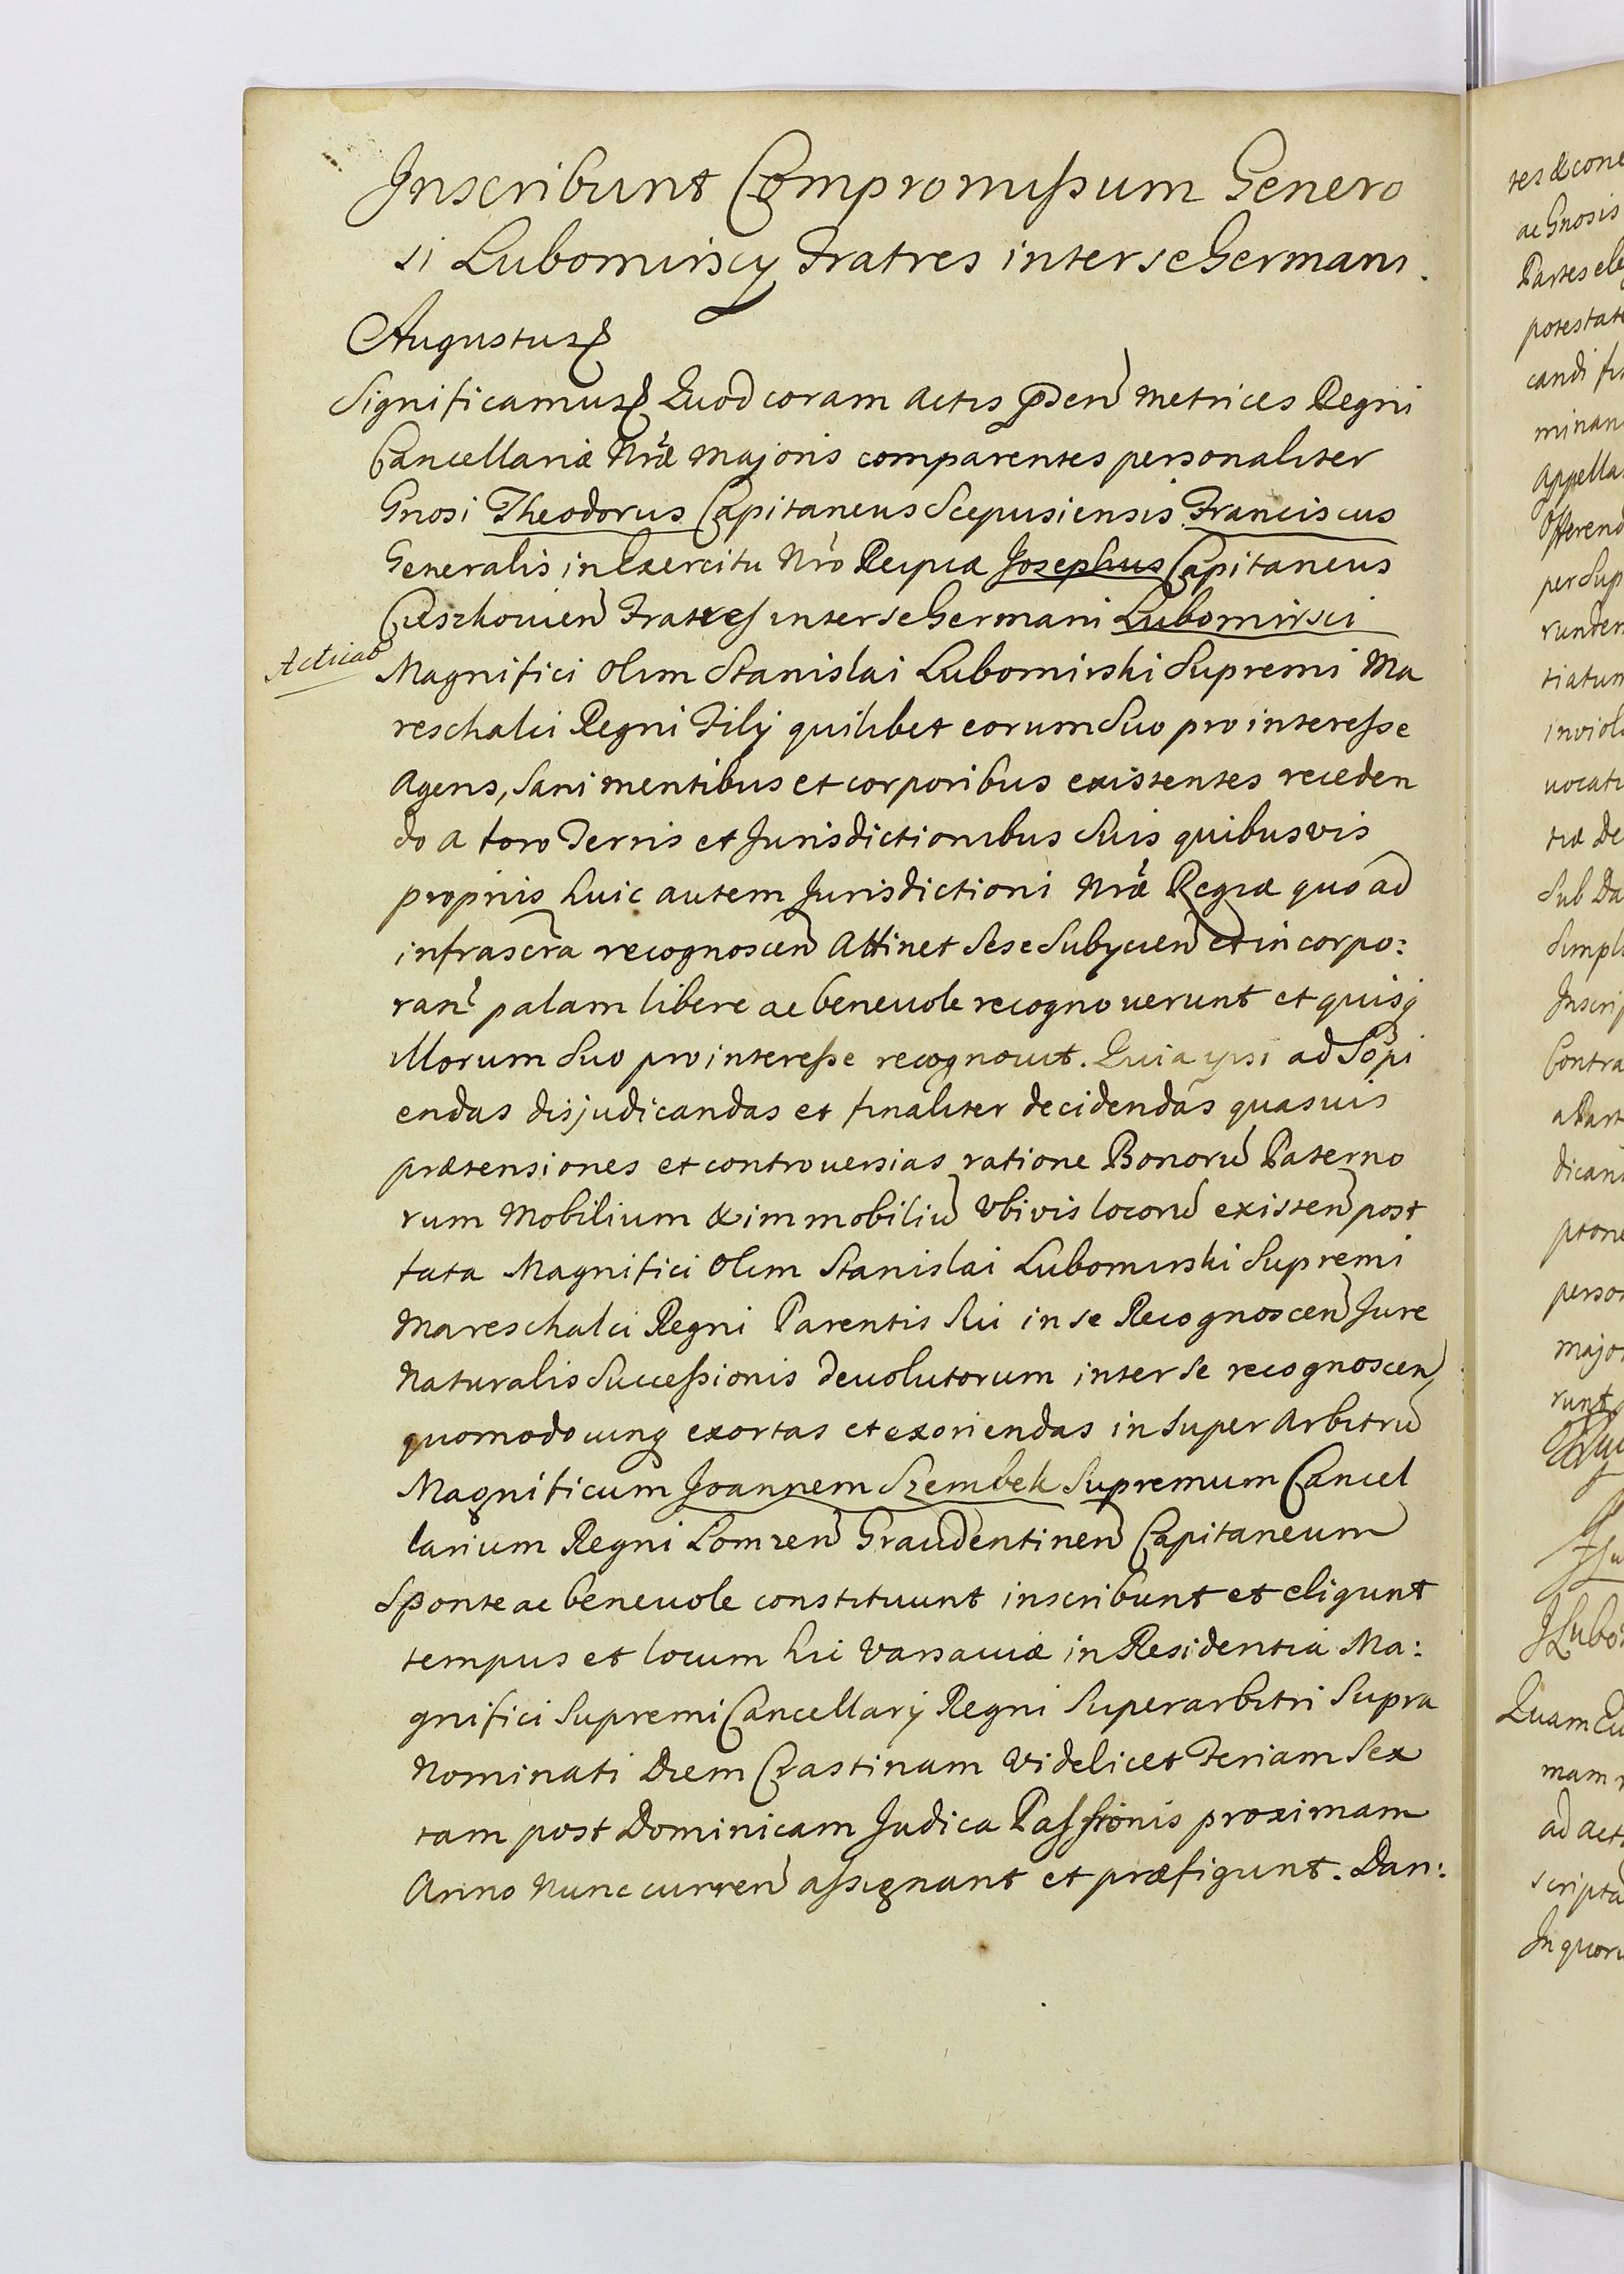 Inscribunt Compromissum Genero
si Lubomirscy Fratres inter se Germani.
Augustus
Significamus Quod coram Actis pñden Metrices Regni
Cancellariæ Nræ Majoris comparentes personaliter
Gnosi Theodorus Capitaneus Scepusiensis Franciscus
Generalis in Exercitu Nro Reipcæ Josephus Capitaneus
Cieszkovien Fratres inter se Germani Lubomirsci
Acticat
Magnifici olim Stanislai Lubomirski Supremi Ma
reschalci Regni Filÿ quilibet eorum Suo pro interesse
Agens, Sani mentibus et corporibus existentes receden
do a foro Terris et Jurisdictionibus Suis quibusvis
proprijs huic autem Jurisdictioni Nræ Regiæ quo ad
infrascra recognoscen Attinet Sese Subÿcien et incorpo:
ran palam libere ac benevole recognoverunt et quisq
illorum Suo pro interesse recognovit. Quia ipsi ad Sopi
endas disjudicandas et finaliter decidendas quasvis
prætensiones et controversias ratione Bonorũ Paterno
rum Mobilium & immobiliũ Vbivis locorũ existen post
fata Magnifici Olim Stanislai Lubomirski Supremi
Mareschalci Regni Parentis Sui in se Recognoscen Jure
Naturalis Successionis devolutorum inter Se recognoscen
quomodocunq exortas et exoriendas in Super Arbitrũ
Magnificum Joannem Szembek Supremum Cancel
larium Regni Lomzen Graudentinen Capitaneum
Sponte ac benevole constituunt inscribunt et eligunt
tempus et locum hic Varsaviæ in Residentia Ma:
gnifici Supremi Cancellarÿ Regni Superarbitri Supra
Nominati Diem Crastinam Videlicet Feriam Sex
tam post Dominicam Judica Passionis proximam
Anno Nunc curren assignant et præfigunt. Dan:
tes & cone
ac Gnosis
Partes ele
potestate
candi
minan
Appella
Offerend
per Sup
runden
tiatum
inviol
vocati
tiæ De
Sub Da
Simpl
Inscrip
Contra
a Part
dican
ptone
person
major
runt
JLubo
Quam
mam
ad act
scripta
In quoru